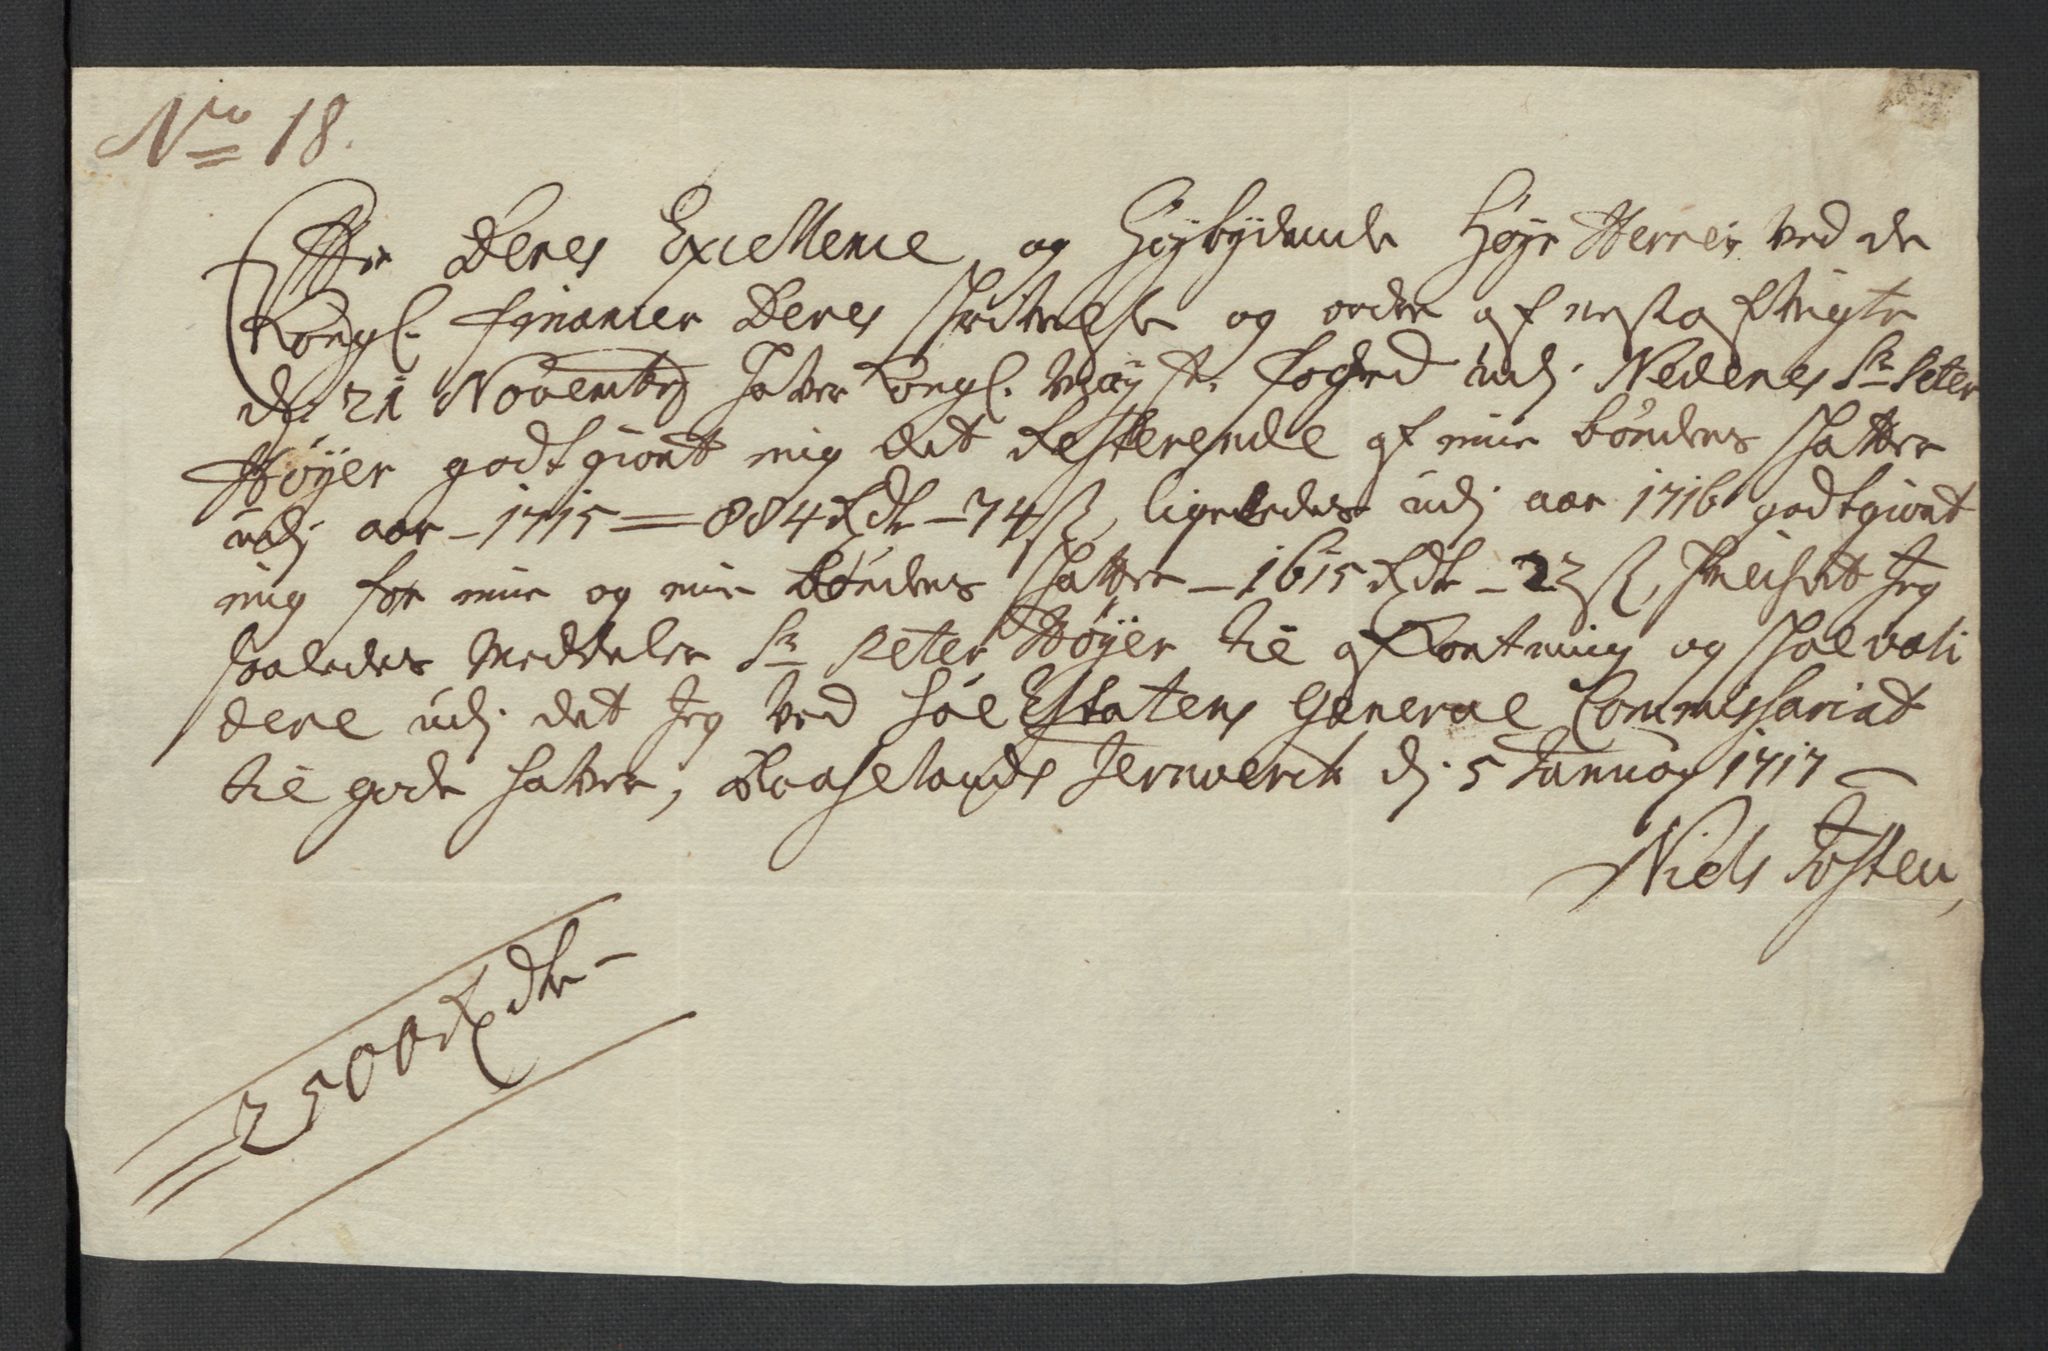 No 18.
Efter Deres Excellence og Høybydende Høye Herrer ved de
Kongl. Financer Deres skrivelse og order af nest afvigte
d. 21 Novembr hafver Kongl. May st. foged udj Nedenes Sr Peter
Høyer godtgiort mig det Resterende af mine bønders skatter
udj aar – 1715 = 884 Rdr – 74 ß, ligeledes udj aar 1716 godtgiort
mig for mine og mine bønders skatter – 1615 Rdr – 23 ß, Jeg
saaledes Meddeler Sr Peter Høyer til afkortning og skal vali
dere udj det Jeg ved Søe Estatens General Commissariat
til gode hafver, Baaselands Jernverck dj 5 Januarj 1717 –
Niels
2500 Rdr –